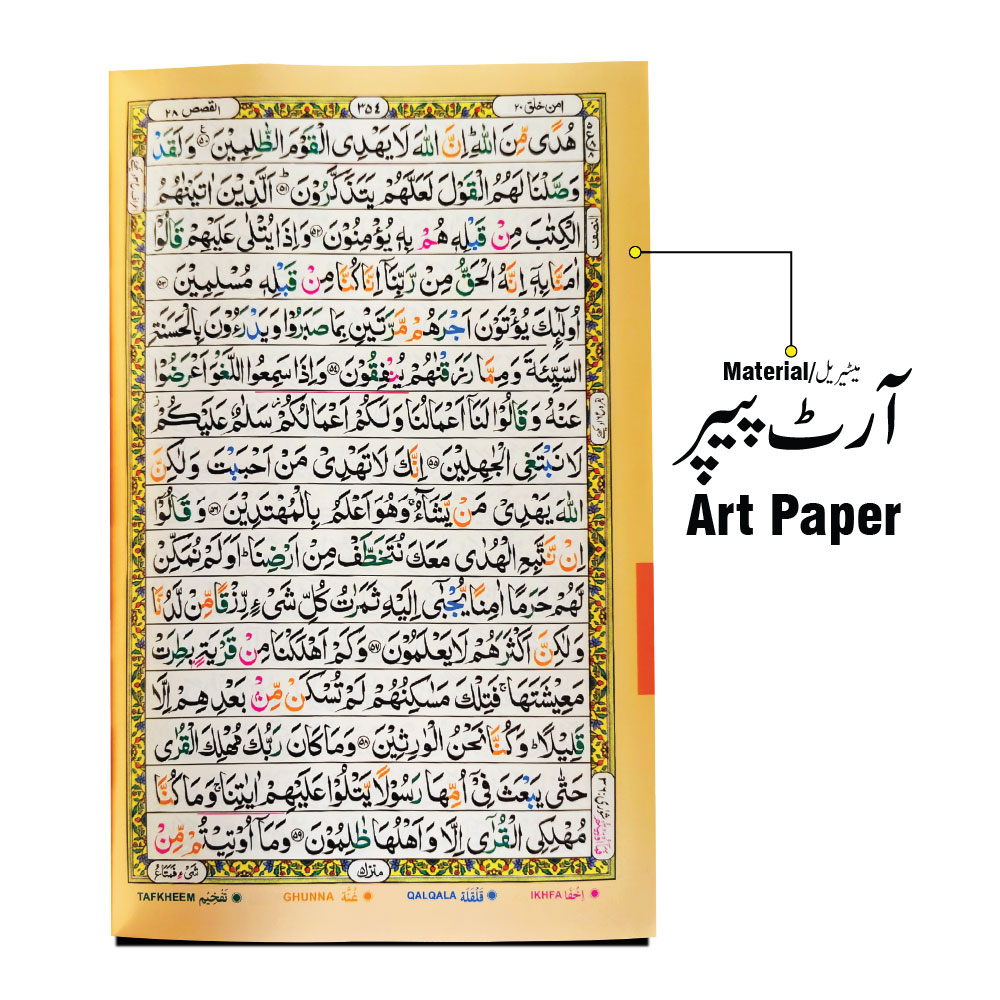 امن خلق ۲۰
۳۵٤
القصص ۲۸
هُدًى مِّنَ اللّٰهِ ؕ اِنَّ اللّٰهَ لَا يَهْدِى الْقَوْمَ الظّٰلِمِيْنَ ۵۰ وَلَقَدْ
وَصَّلْنَا لَهُمُ الْقَوْلَ لَعَلَّهُمْ يَتَذَكَّرُوْنَ ؕ ۵۱ اَلَّذِيْنَ اٰتَيْنٰهُمُ
الْكِتٰبَ مِنْ قَبْلِهٖ هُمْ بِهٖ يُؤْمِنُوْنَ ۵۲ وَاِذَا يُتْلٰى عَلَيْهِمْ قَالُوْۤا
النصف
اٰمَنَّا بِهٖۤ اِنَّهُ الْحَقُّ مِنْ رَّبِّنَاۤ اِنَّا كُنَّا مِنْ قَبْلِهٖ مُسْلِمِيْنَ ۵۳
اُولٰٓئِكَ يُؤْتَوْنَ اَجْرَهُمْ مَّرَّتَيْنِ بِمَا صَبَرُوْا وَيَدْرَءُوْنَ بِالْحَسَنَةِ
السَّيِّئَةَ وَمِمَّا رَزَقْنٰهُمْ يُنْفِقُوْنَ ۵٤ وَاِذَا سَمِعُوا اللَّغْوَ اَعْرَضُوْا
عَنْهُ وَقَالُوْا لَنَاۤ اَعْمَالُنَا وَلَكُمْ اَعْمَالُكُمْ سَلٰمٌ عَلَيْكُمْ
لَا نَبْتَغِى الْجٰهِلِيْنَ ۵۵ اِنَّكَ لَا تَهْدِىْ مَنْ اَحْبَبْتَ وَلٰكِنَّ
اللّٰهَ يَهْدِىْ مَنْ يَّشَآءُ ۚ وَهُوَ اَعْلَمُ بِالْمُهْتَدِيْنَ ۵۶ وَقَالُوْۤا
اِنْ نَّتَّبِعِ الْهُدٰى مَعَكَ نُتَخَطَّفْ مِنْ اَرْضِنَا ؕ اَوَلَمْ نُمَكِّنْ
لَّهُمْ حَرَمًا اٰمِنًا يُّجْبٰۤى اِلَيْهِ ثَمَرٰتُ كُلِّ شَىْءٍ رِّزْقًا مِّنْ لَّدُنَّا
وَلٰكِنَّ اَكْثَرَهُمْ لَا يَعْلَمُوْنَ ۵۷ وَكَمْ اَهْلَكْنَا مِنْ قَرْيَةٍۭ بَطِرَتْ
مَعِيْشَتَهَا ۚ فَتِلْكَ مَسٰكِنُهُمْ لَمْ تُسْكَنْ مِّنْۢ بَعْدِهِمْ اِلَّا
قَلِيْلًا ؕ وَكُنَّا نَحْنُ الْوٰرِثِيْنَ ۵۸ وَمَا كَانَ رَبُّكَ مُهْلِكَ الْقُرٰى
حَتّٰى يَبْعَثَ فِىْۤ اُمِّهَا رَسُوْلًا يَّتْلُوْا عَلَيْهِمْ اٰيٰتِنَا ۚ وَمَا كُنَّا
مُهْلِكِى الْقُرٰٓى اِلَّا وَاَهْلُهَا ظٰلِمُوْنَ ۵۹ وَمَاۤ اُوْتِيْتُمْ مِّنْ
منزل۵
شَىْءٍ فَمَتَاعُ
IKHFA اِخْفَا
QALQALA قَلْقَلَة
GHUNNA غُنَّه
TAFKHEEM تَفْخِيْم
Material/میٹیریل
آرٹ پیپر
Art Paper